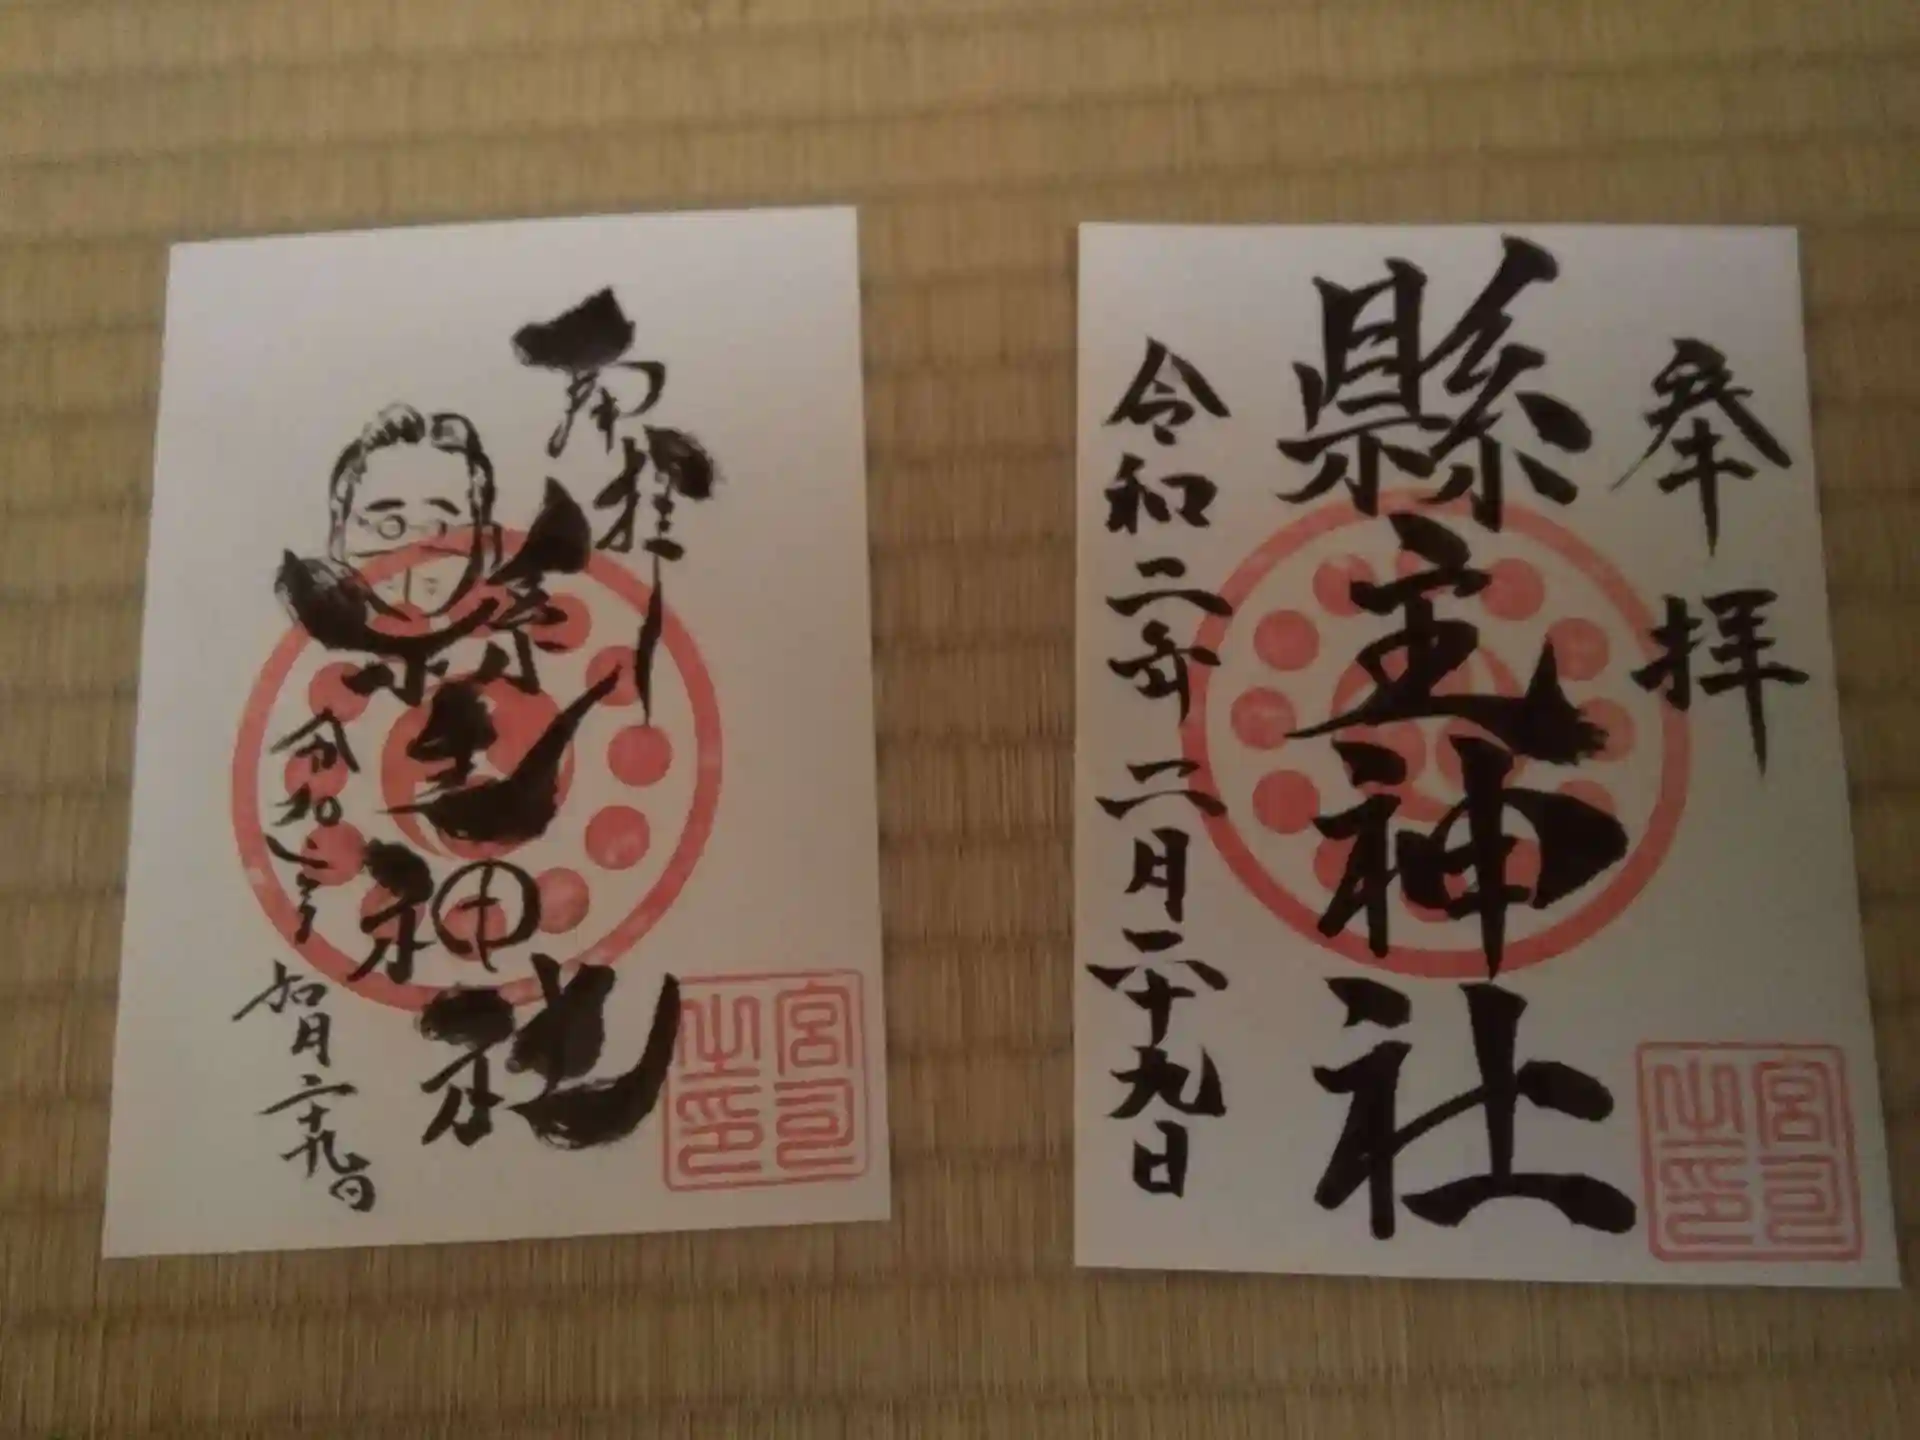 奉拝
縣主神社
令和二年二月二十九日
宮司之印
縣主神社
令和二年
如月二十九日
宮司之印